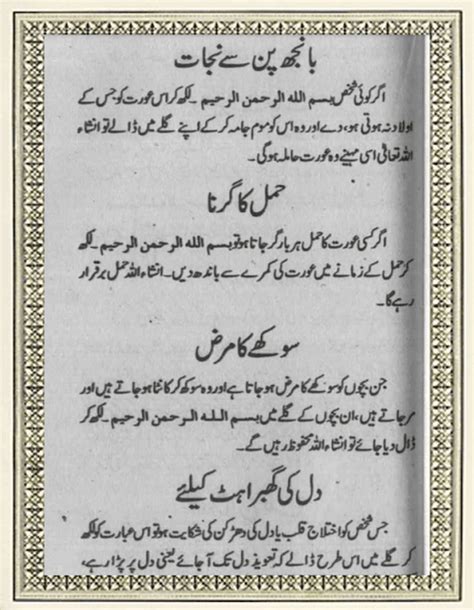 بانجھ پن سے نجات
اگر کوئی شخص بسم الله الرحمن الرحیم ۔ لکھ کر اس عورت کو جس کے
اولاد نہ ہوتی ہو، دے اور وہ اس کو موم جامہ کر کے اپنے گلے میں ڈالے تو انشاء
اللہ تعالٰی اسی مہینے وہ عورت حاملہ ہوگی۔
حمل کا گرنا
اگر کسی عورت کا حمل ہر بار گر جاتا ہو تو بسم الله الرحمن الرحیم ۔ لکھ
کر حمل کے زمانے میں عورت کی کمر سے باندھ دیں۔ انشاء اللہ حمل برقرار
رہے گا۔
سوکھے کا مرض
جن بچوں کو سوکھے کا مرض ہو جاتا ہے اور وہ سوکھ کر کانٹا ہو جاتے ہیں اور
مر جاتے ہیں، ان بچوں کے گلے میں بسم الله الرحمن الرحیم ۔ لکھ کر
ڈال دیا جائے تو انشاء اللہ محفوظ رہیں گے۔
دل کی گھبراہٹ کیلئے
جس شخص کو اختلاج قلب یا دل کی دھڑکن کی شکایت ہو تو اس عبارت کو لکھ کر
گلے میں اس طرح ڈالے کہ تعویذ دل تک آ جائے یعنی دل پر پڑا رہے،